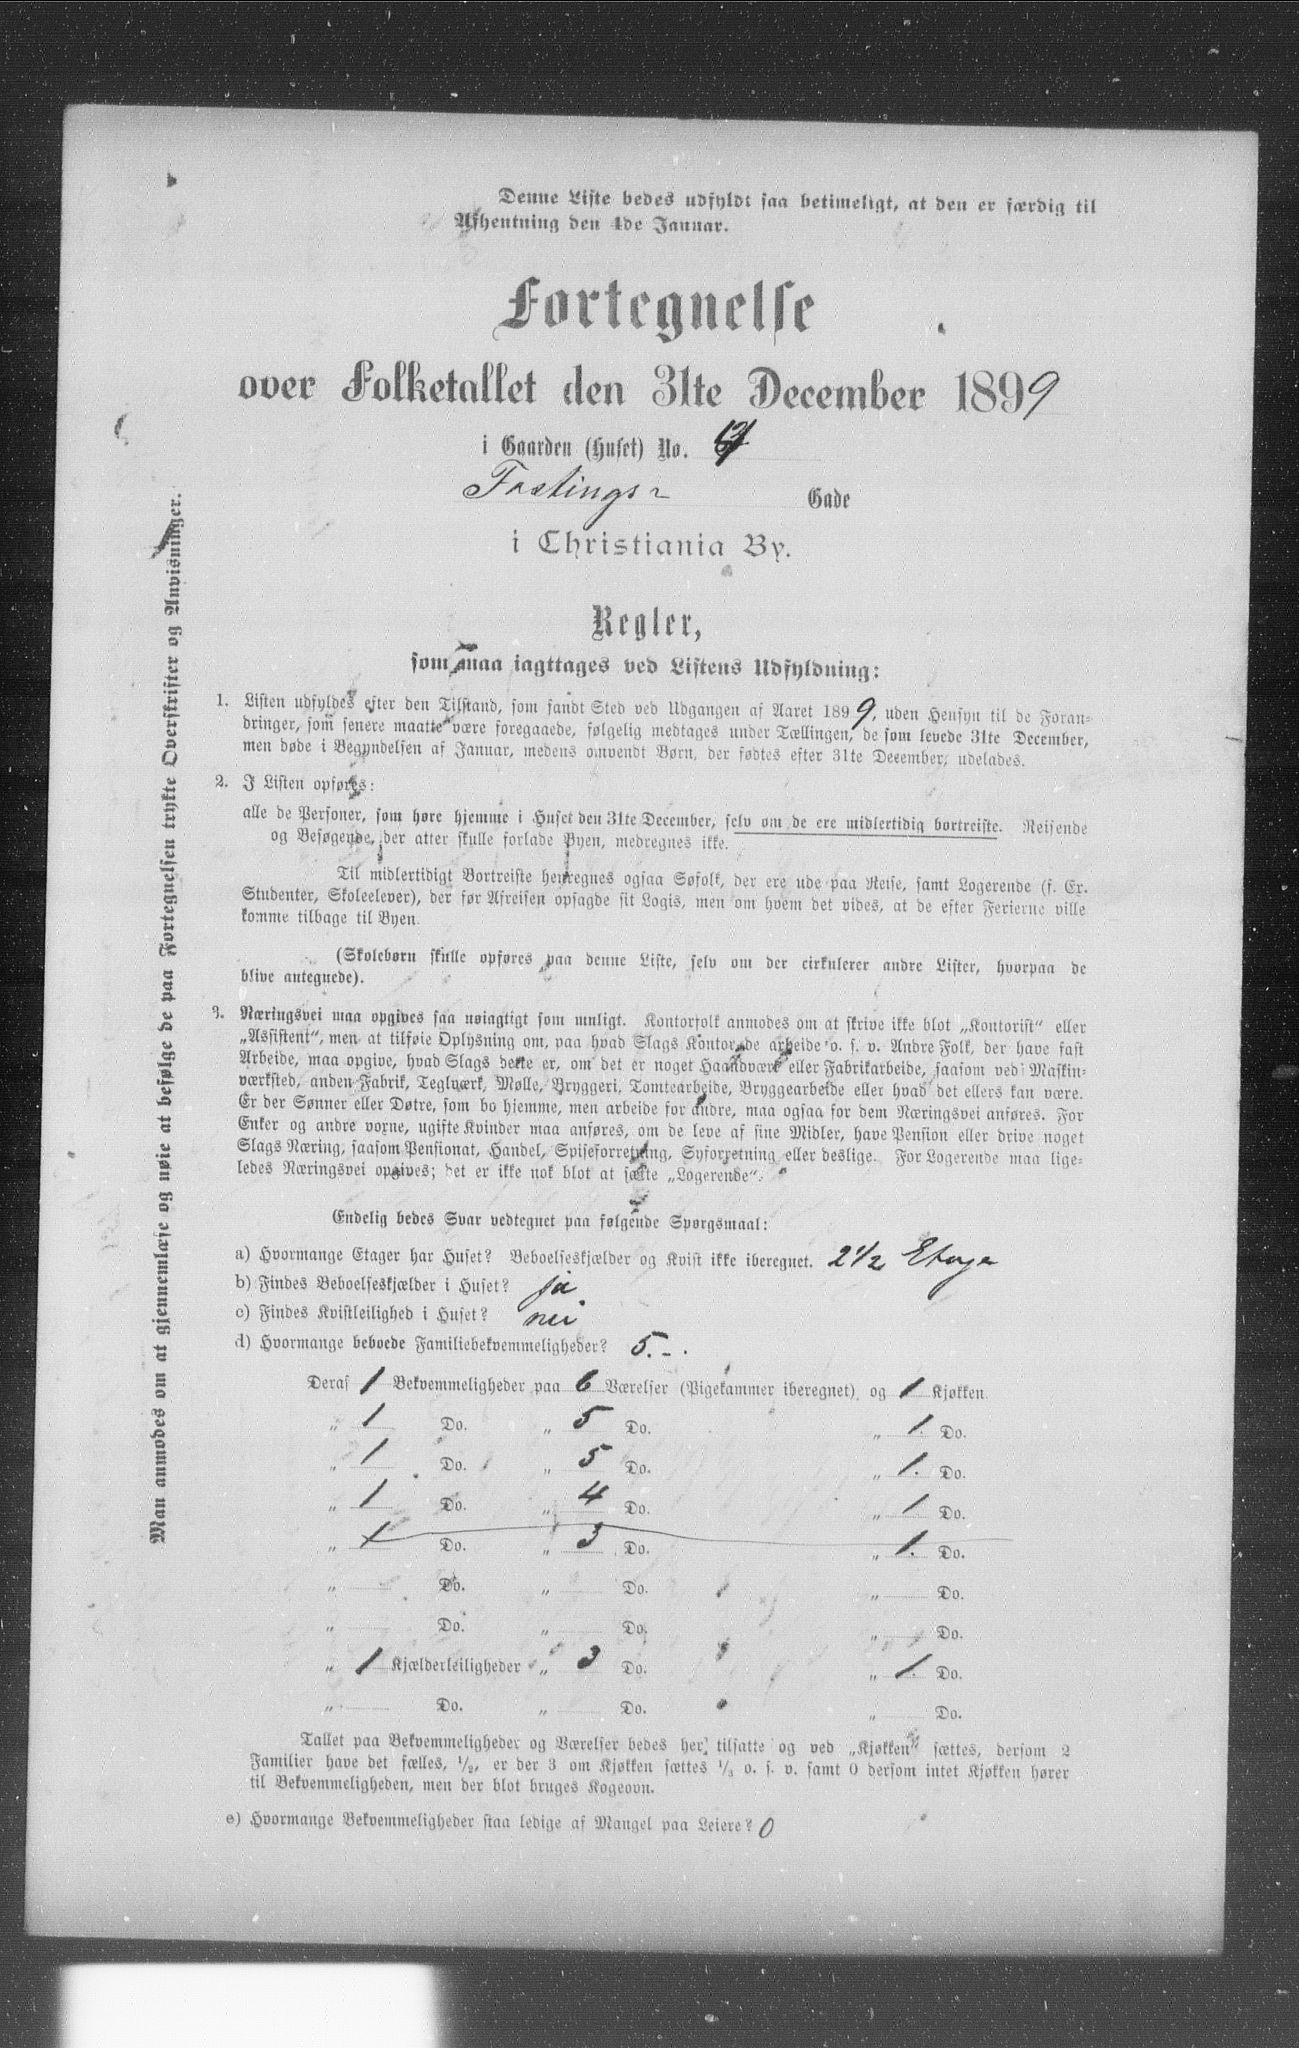 Denne Liste bedes udfyldt saa betimeligt, at den er færdig til
Afhentning den 4de Januar.
Fortegnelse
over Folketallet den 31te December 1899
i Gaarden (Huset) No.
Fastings Gade
i Christiania By.
Regler,
som maa iagttages ved Listens Udfyldning:
1. Listen udfyldes efter den Tilstand, som fandt Sted ved Udgangen af Aaret 1899, uden Hensyn til de Foran-
dringer, som senere maatte være foregaaede, følgelig medtages under Tællingen, de som levede 31te December,
men døde i Begyndelsen af Januar, medens omvendt Børn, der fødtes efter 31te December, udelades.
2. I Listen opføres:
alle de Personer, som høre hjemme i Huset den 31te December, selv om de ere midlertidig bortreiste. Reisende
og Besøgende, der atter skulle forlade Byen, medregnes ikke.
Til midlertidigt Bortreiste henregnes ogsaa Søfolk, der ere ude paa Reise, samt Logerende (f. Ex.
Studenter, Skoleelever), der før Afreisen opsagde sit Logis, men om hvem det vides, at de efter Ferierne ville
komme tilbage til Byen.
(Skolebørn skulle opføres paa denne Liste, selv om der cirkulerer andre Lister, hvorpaa de
blive antegnede).
3. Næringsvei maa opgives saa nøiagtigt som muligt. Kontorfolk anmodes om at skrive ikke blot „Kontorist“ eller
„Assistent“, men at tilføie Oplysning om, paa hvad Slags Kontor de arbeide o. s. v. Andre Folk, der have fast
Arbeide, maa opgive, hvad Slags dette er, om det er noget Haandværk eller Fabrikarbeide, saasom ved Maskin-
værksted, anden Fabrik, Teglværk, Mølle, Bryggeri, Tomtearbeide, Bryggearbeide eller hvad det ellers kan være.
Er der Sønner eller Døtre, som bo hjemme, men arbeide for andre, maa ogsaa for dem Næringsvei anføres. For
Enker og andre voxne, ugifte Kvinder maa anføres, om de leve af sine Midler, have Pension eller drive noget
Slags Næring, saasom Pensionat, Handel, Spiseforretning, Syforretning eller deslige. For Logerende maa lige-
ledes Næringsvei opgives; det er ikke nok blot at sætte „Logerende“.
Endelig bedes Svar vedtegnet paa følgende Spørgsmaal:
a) Hvormange Etager har Huset? Beboelseskjælder og Kvist ikke iberegnet. 2 1/2 Etage
b) Findes Beboelseskjælder i Huset? ja
c) Findes Kvistleilighed i Huset? nei
d) Hvormange beboede Familiebekvemmeligheder? 5.-.
Deraf 1 Bekvemmeligheder paa 6 Værelser (Pigekammer iberegnet) og 1 Kjøkken.
„ 1 Do. „ 5 Do. „ 1. Do.
„ 1 Do. „ 5 Do. „ 1. Do.
„ 1 Do. „ 4 Do. „ 1 Do.
„ 1 Do. „ 3 Do. „ 1. Do.
„ Do. „ Do. „ Do.
„ Do. „ Do. „ Do.
„ 1 Kjælderleiligheder „ 3 Do. „ 1. Do.
„ Do. „ Do. „ Do.
Tallet paa Bekvemmeligheder og Værelser bedes her tilsatte og ved „Kjøkken“ sættes, dersom 2
Familier have det fælles, 1/2, er der 3 om Kjøkken sættes 1/3 o. s. v. samt 0 dersom intet Kjøkken hører
til Bekvemmeligheden, men der blot bruges Kogeovn.
e) Hvormange Bekvemmeligheder staa ledige af Mangel paa Leiere? 0
Man anmodes om at gjennemlæse og nøie at befølge de paa Fortegnelsen trykte Overskrifter og Anvisninger.